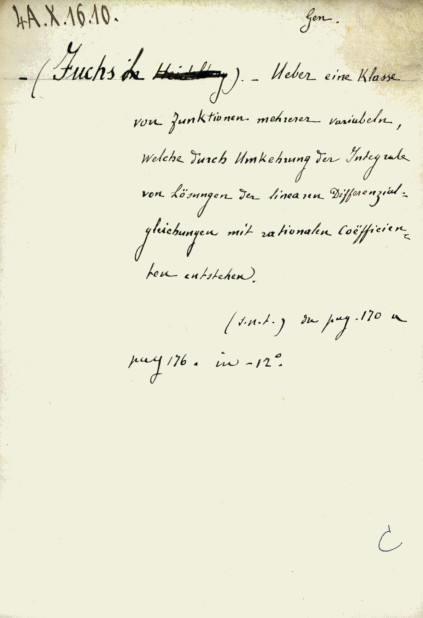 4A.X.16.10.
Gen.
- (Fuchs in Heidelberg). - Ueber eine Klasse
von Funktionen mehrerer variabeln,
welche durch Umkehrung der Integrale
von Lösungen der linearen Differenzial=
gleichungen mit rationalen Coëfficien=
ten entstehen.
(s.n.t.) da pag. 170 a
pag 176. in -12°.
C